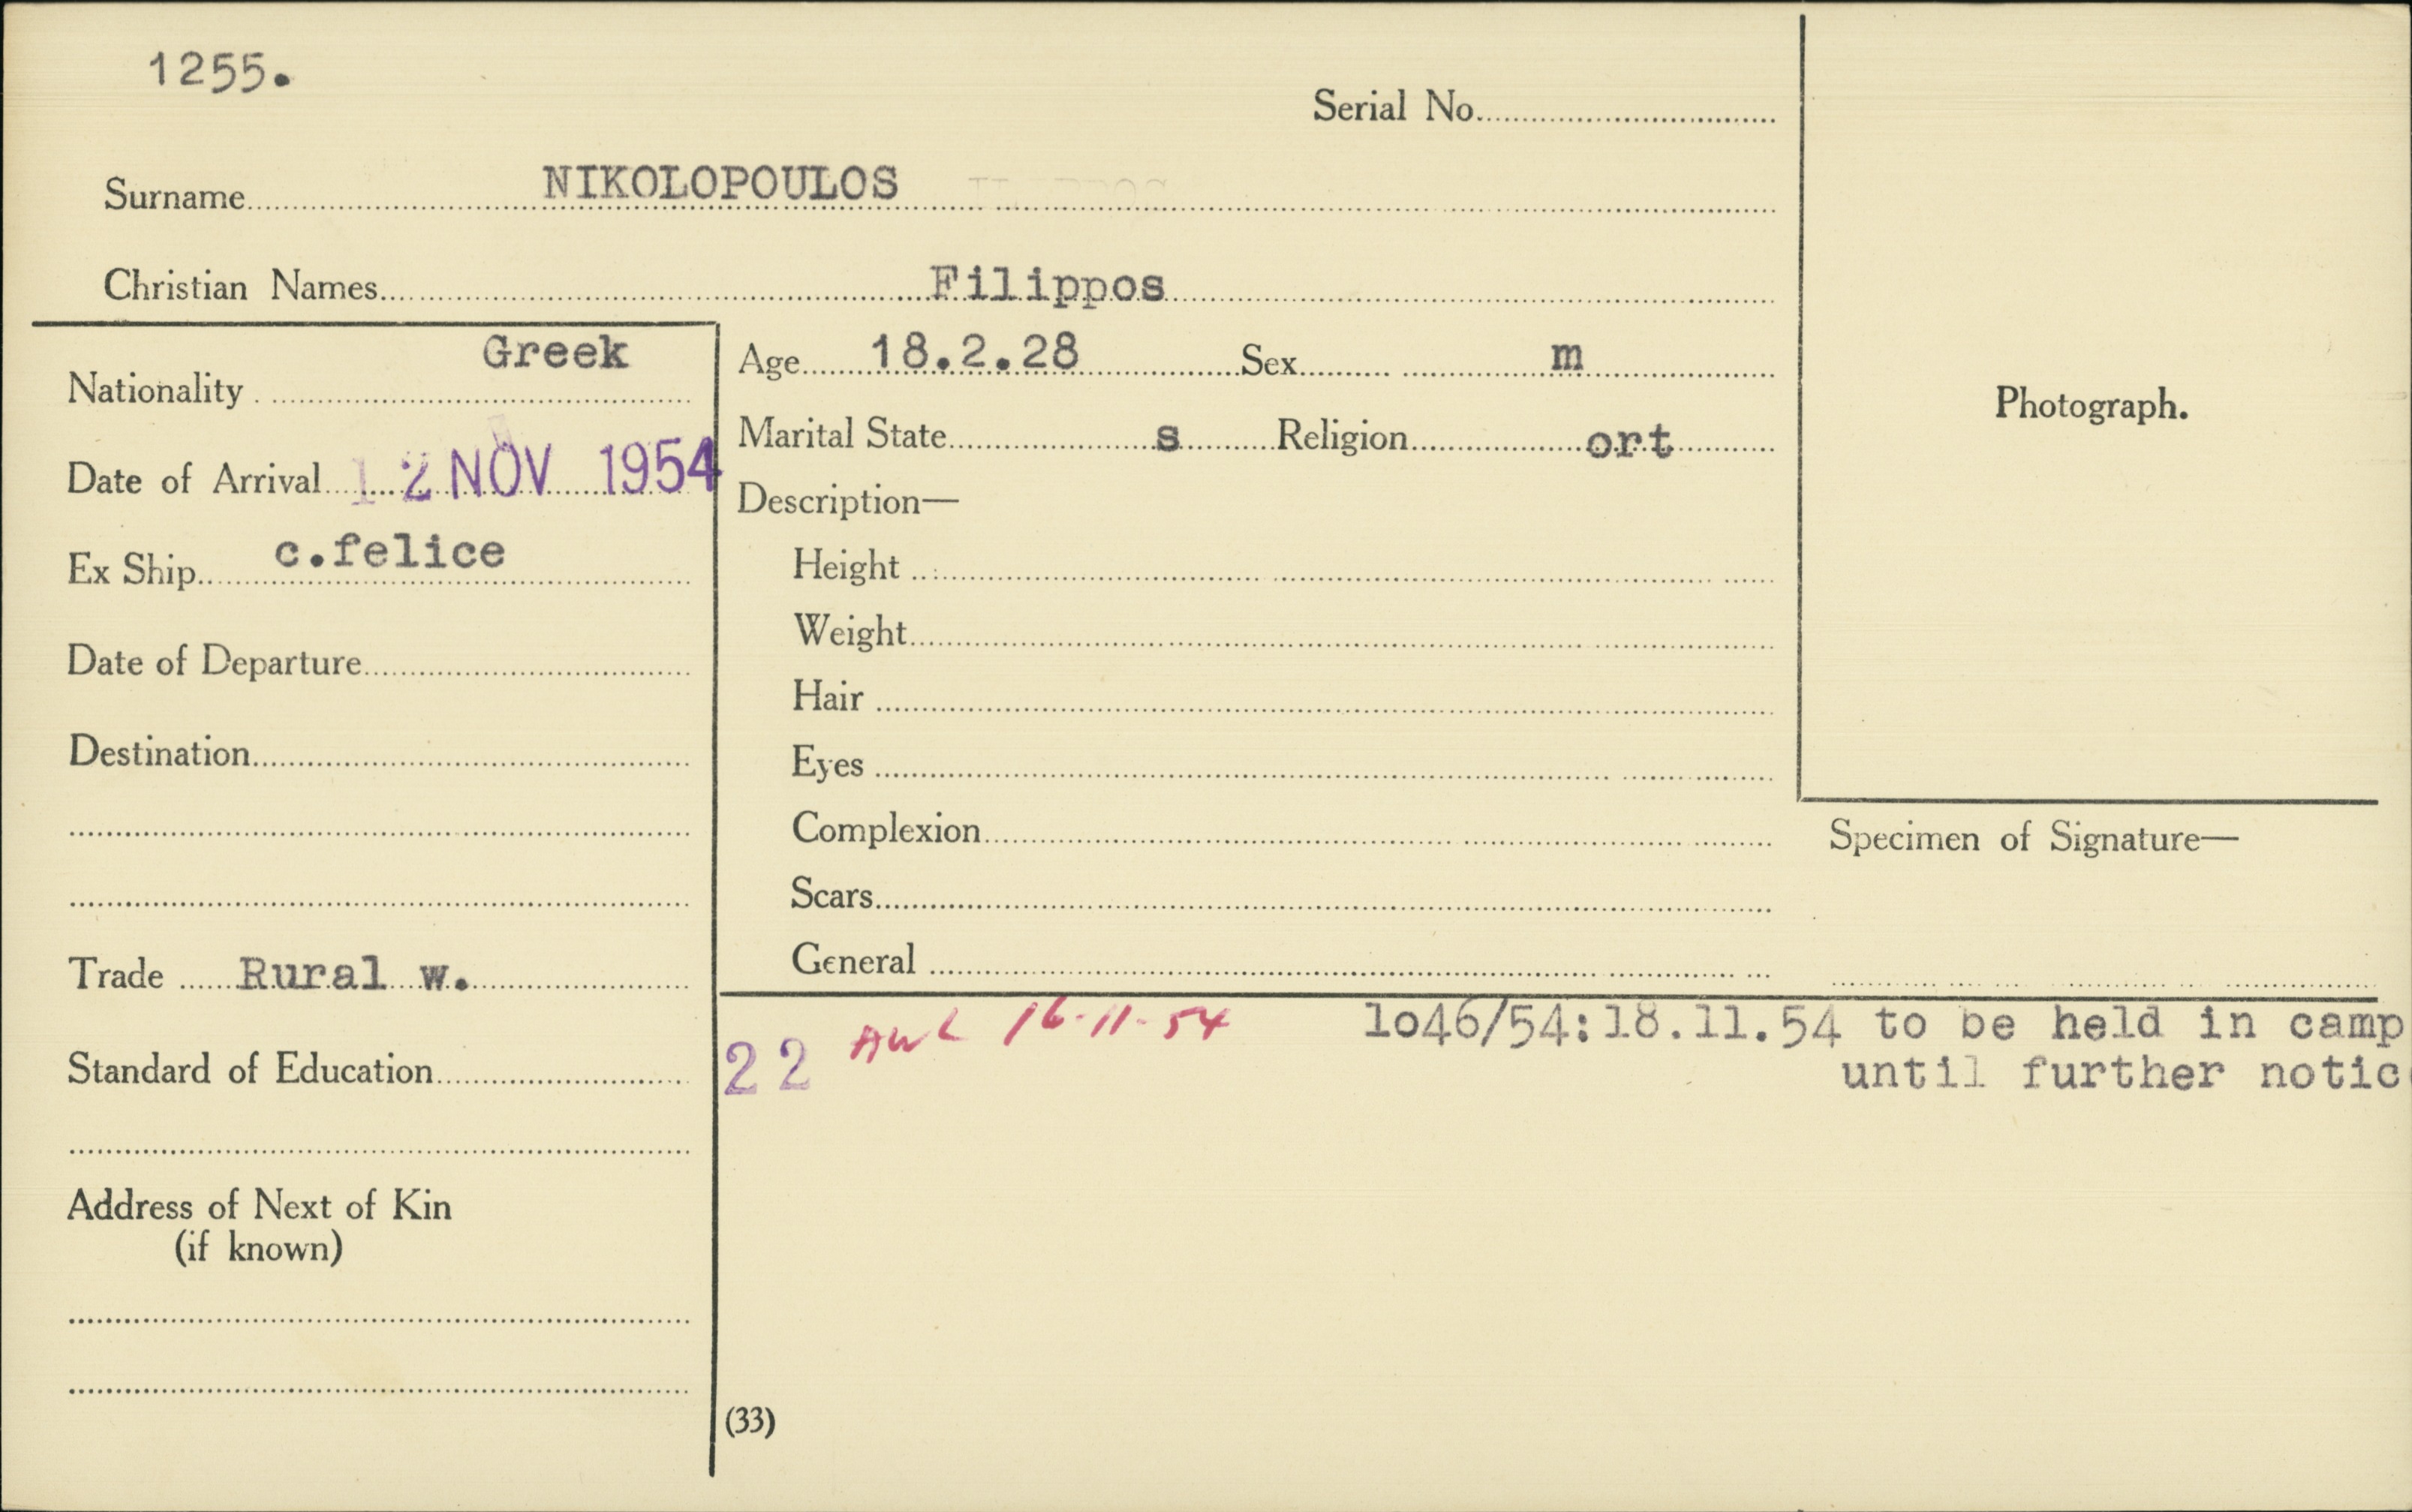 1255.
Serial No.
Surname NIKOLOPOULOS
Christian Names Filippos
Nationality Greek
Date of Arrival 12 NOV 1954
Ex Ship c.felice
Date of Departure
Destination
Trade Rural w.
Standard of Education
Address of Next of Kin
(if known)
Age 18.2.28 Sex m
Marital State s Religion ort
Description—
Height
Weight
Hair
Eyes
Complexion
Scars
General
Photograph.
Specimen of Signature—
22 AWL 16-11-54 1o46/54:18.11.54 to be held in camp
until further notic
(33)